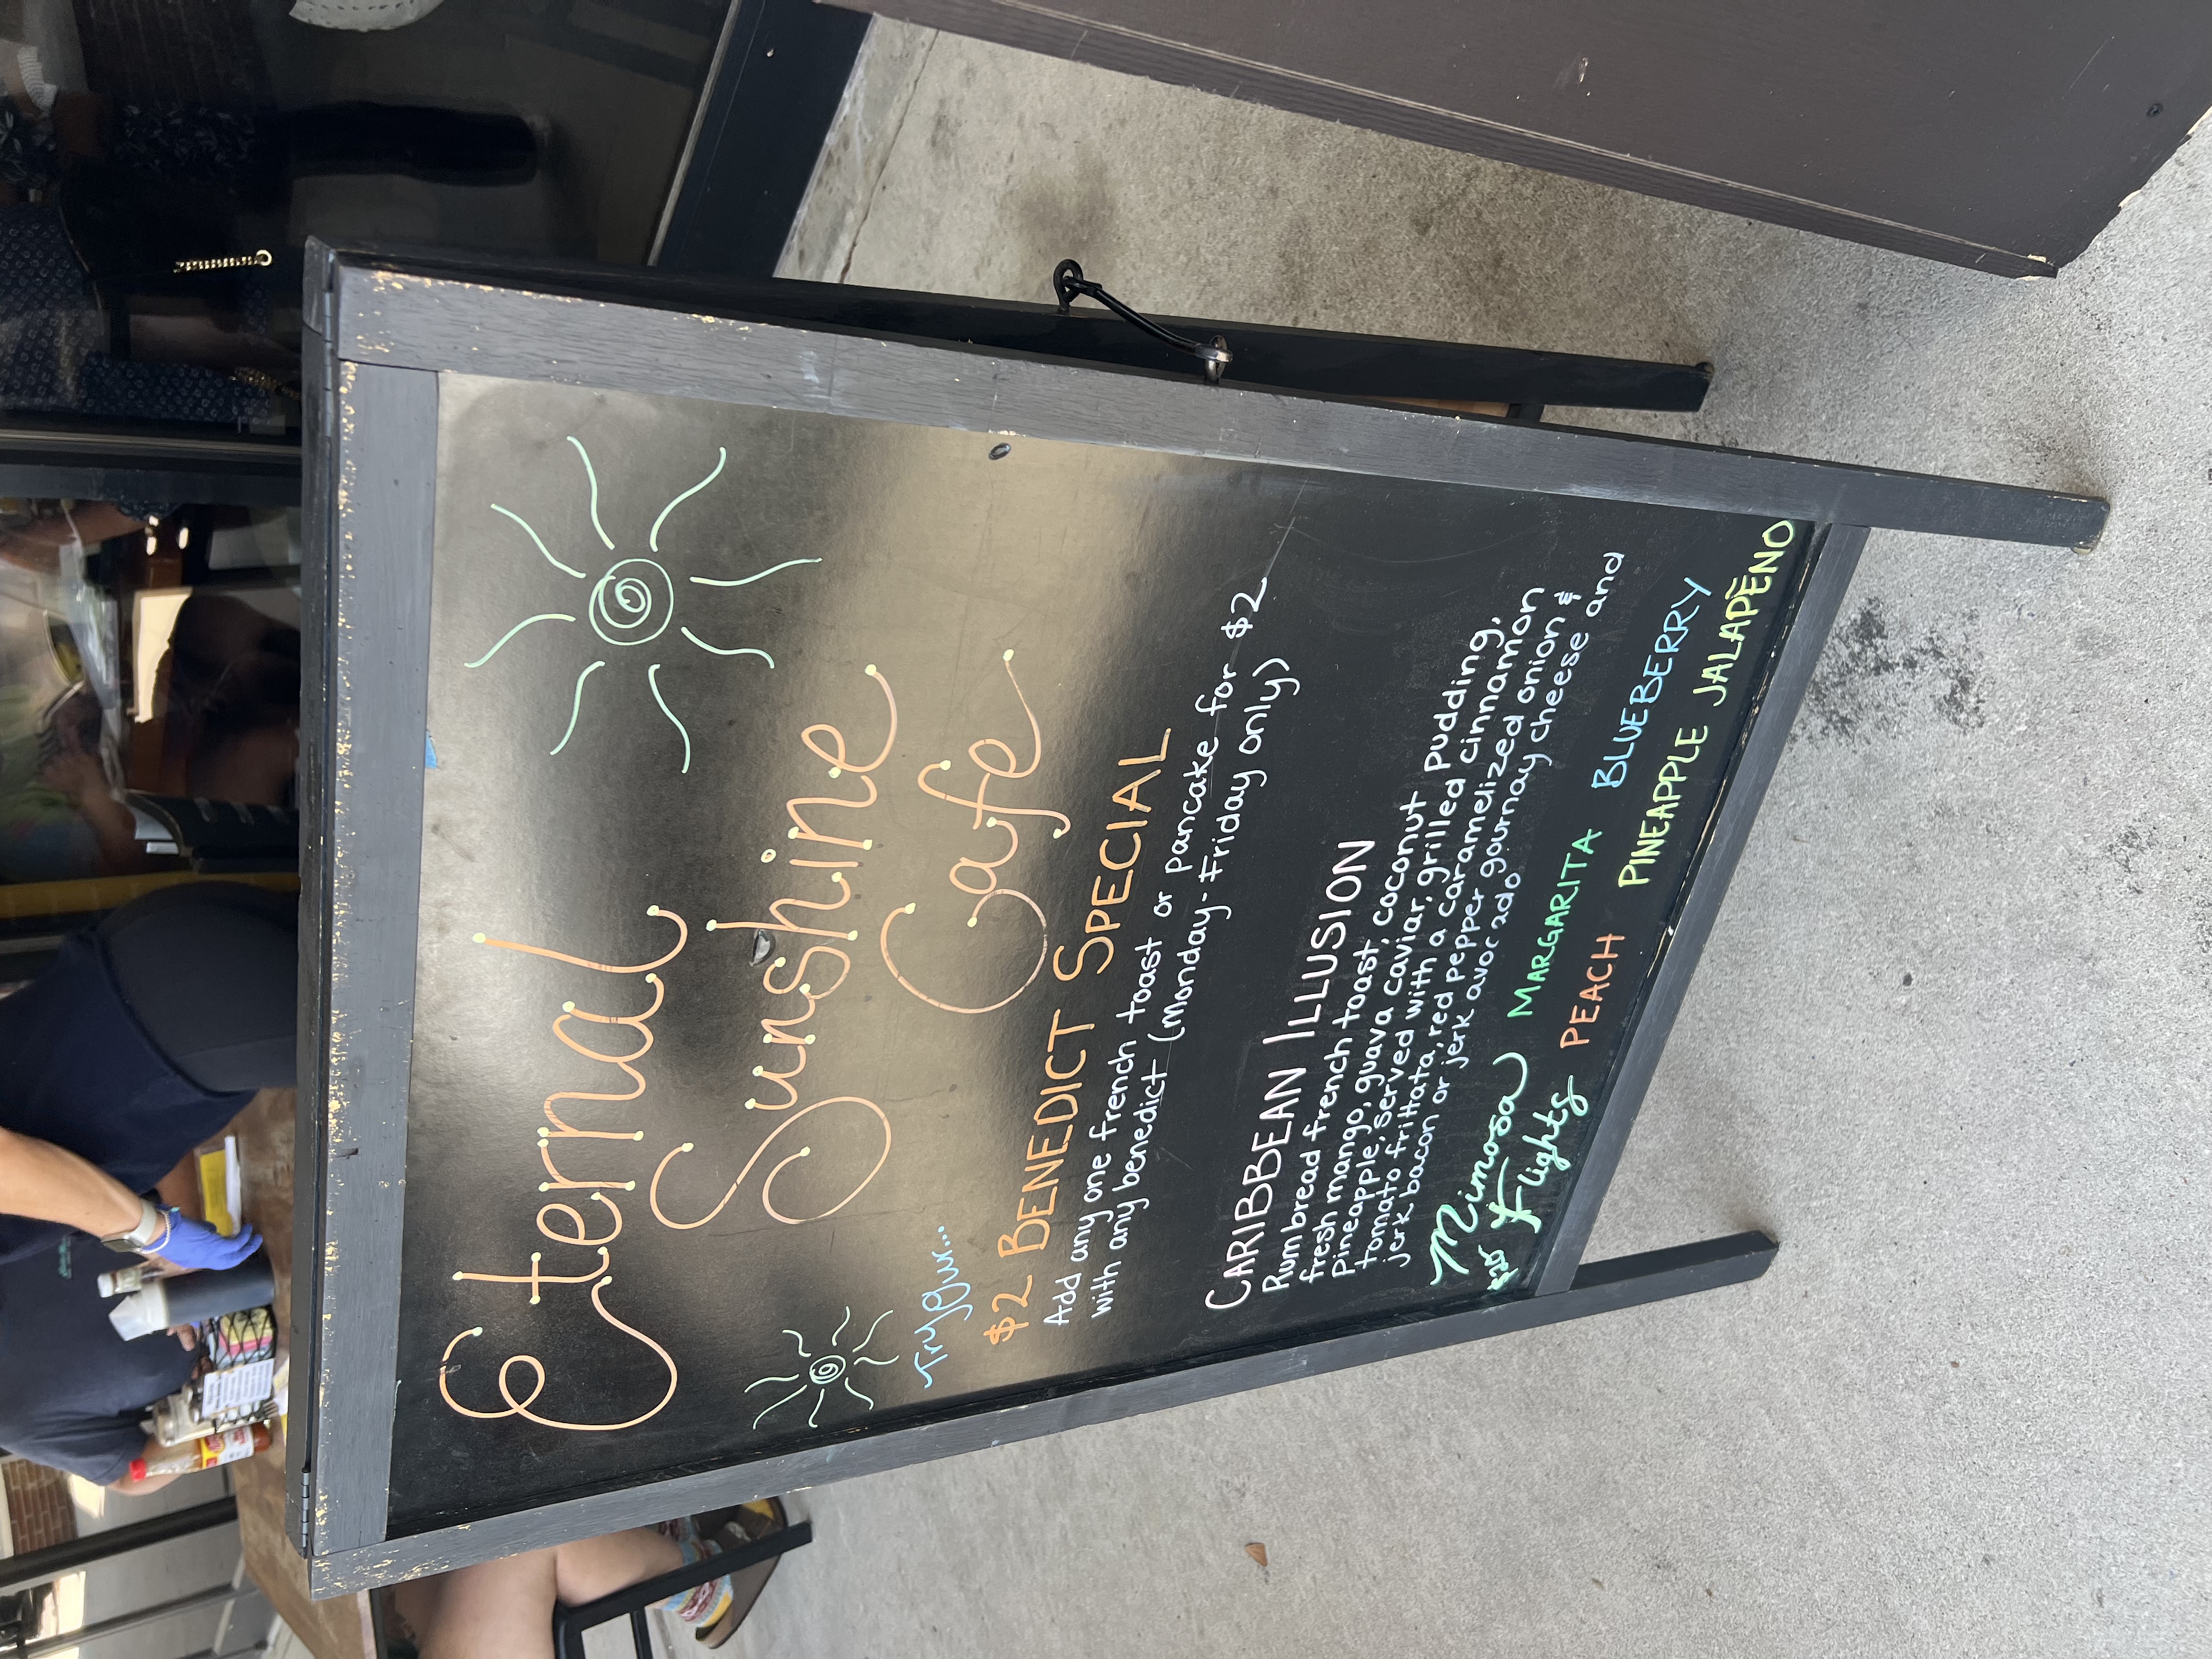 Eternal
Sunshine
Cafe
Try Our...
$2 BENEDICT SPECIAL
Add any one french toast or pancake for $2
with any benedict (Monday-Friday only)
CARIBBEAN ILLUSION
Rum bread french toast, coconut
fresh mango, guava caviar, grilled pudding,
Pineapple, served with a caramelized cinnamon
tomato frittata, red pepper gournay cheese and
onion &
jerk bacon or jerk avocado
Mimosa
Flights
MARGARITA BLUEBERRY
PEACH PINEAPPLE JALAPEÑO